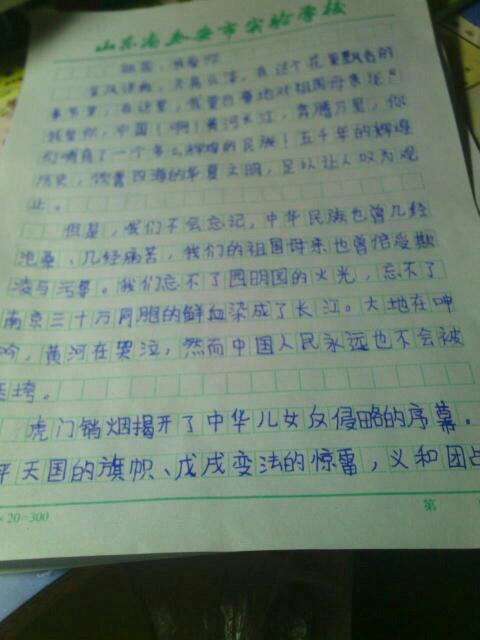 山东省泰安市实验学校
祖国，我爱你
金风送爽，天高云淡，在这个花果飘香的
季节里，在这里，我要自豪地对祖国母亲说：“
我爱你，中国！啊！黄河长江，奔腾万里，你
们哺育了一个多么辉煌的民族！五千年的辉煌
历史，饮誉四海的华夏文明，足以让人叹为观
止。
但是，我们不会忘记，中华民族也曾几经
沧桑、几经痛苦，我们的祖国母亲也曾倍受欺
凌与污辱。我们忘不了圆明园的火光，忘不了
南京三十万同胞的鲜血染成了长江。大地在呻
吟，黄河在哭泣，然而中国人民永远也不会被
压垮。
虎门销烟揭开了中华儿女反侵略的序幕。
平天国的旗帜、戊戌变法的惊雷，义和团
×20=300 第